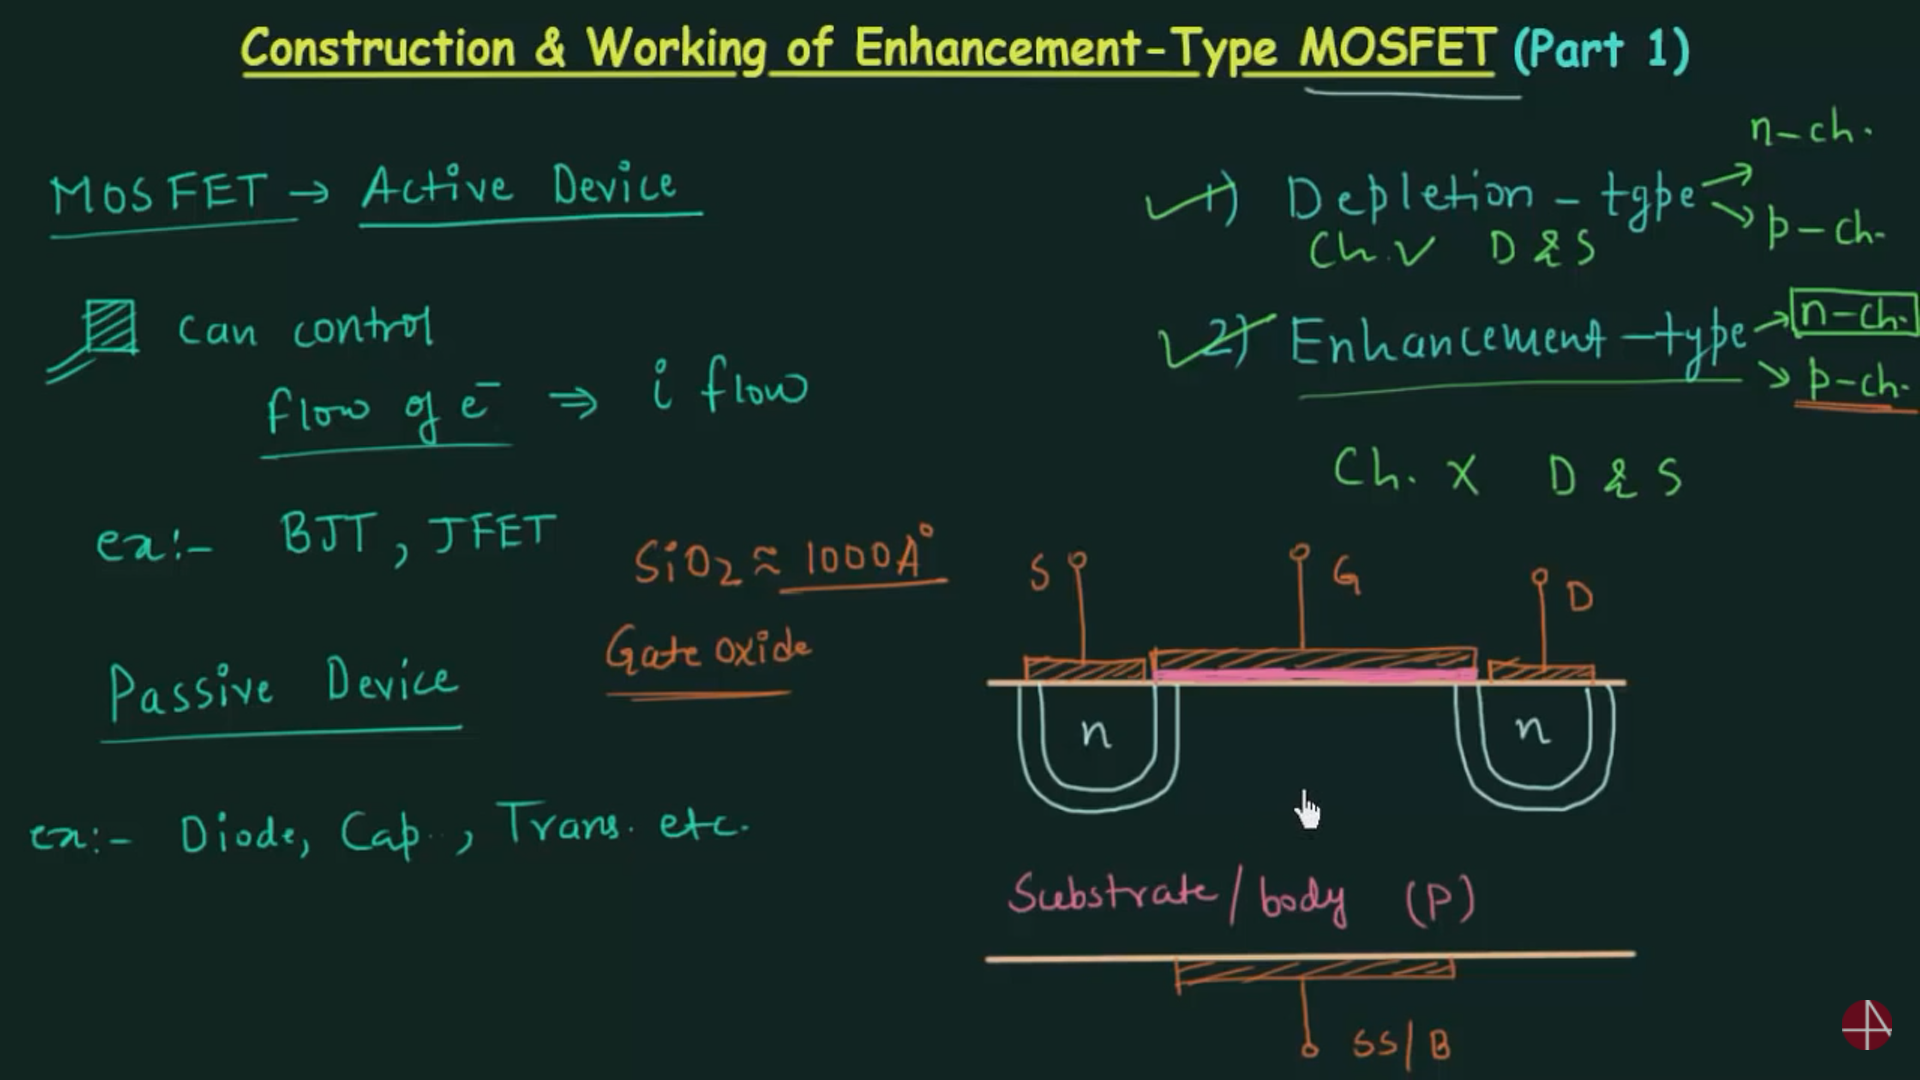 Construction & Working of Enhancement-Type MOSFET (Part 1)
MOSFET → Active Device
can control
flow of e⁻ ⇒ i flow
ex:- BJT, JFET
SiO2 ≈ 1000A°
Gate oxide
Passive Device
ex:- Diode, Cap., Trans. etc.
1) Depletion - type
n-ch.
p-ch.
Ch. ✓ D & S
2) Enhancement - type
n-ch.
p-ch.
Ch. X D & S
S
G
D
n
n
Substrate/body (P)
SS/B